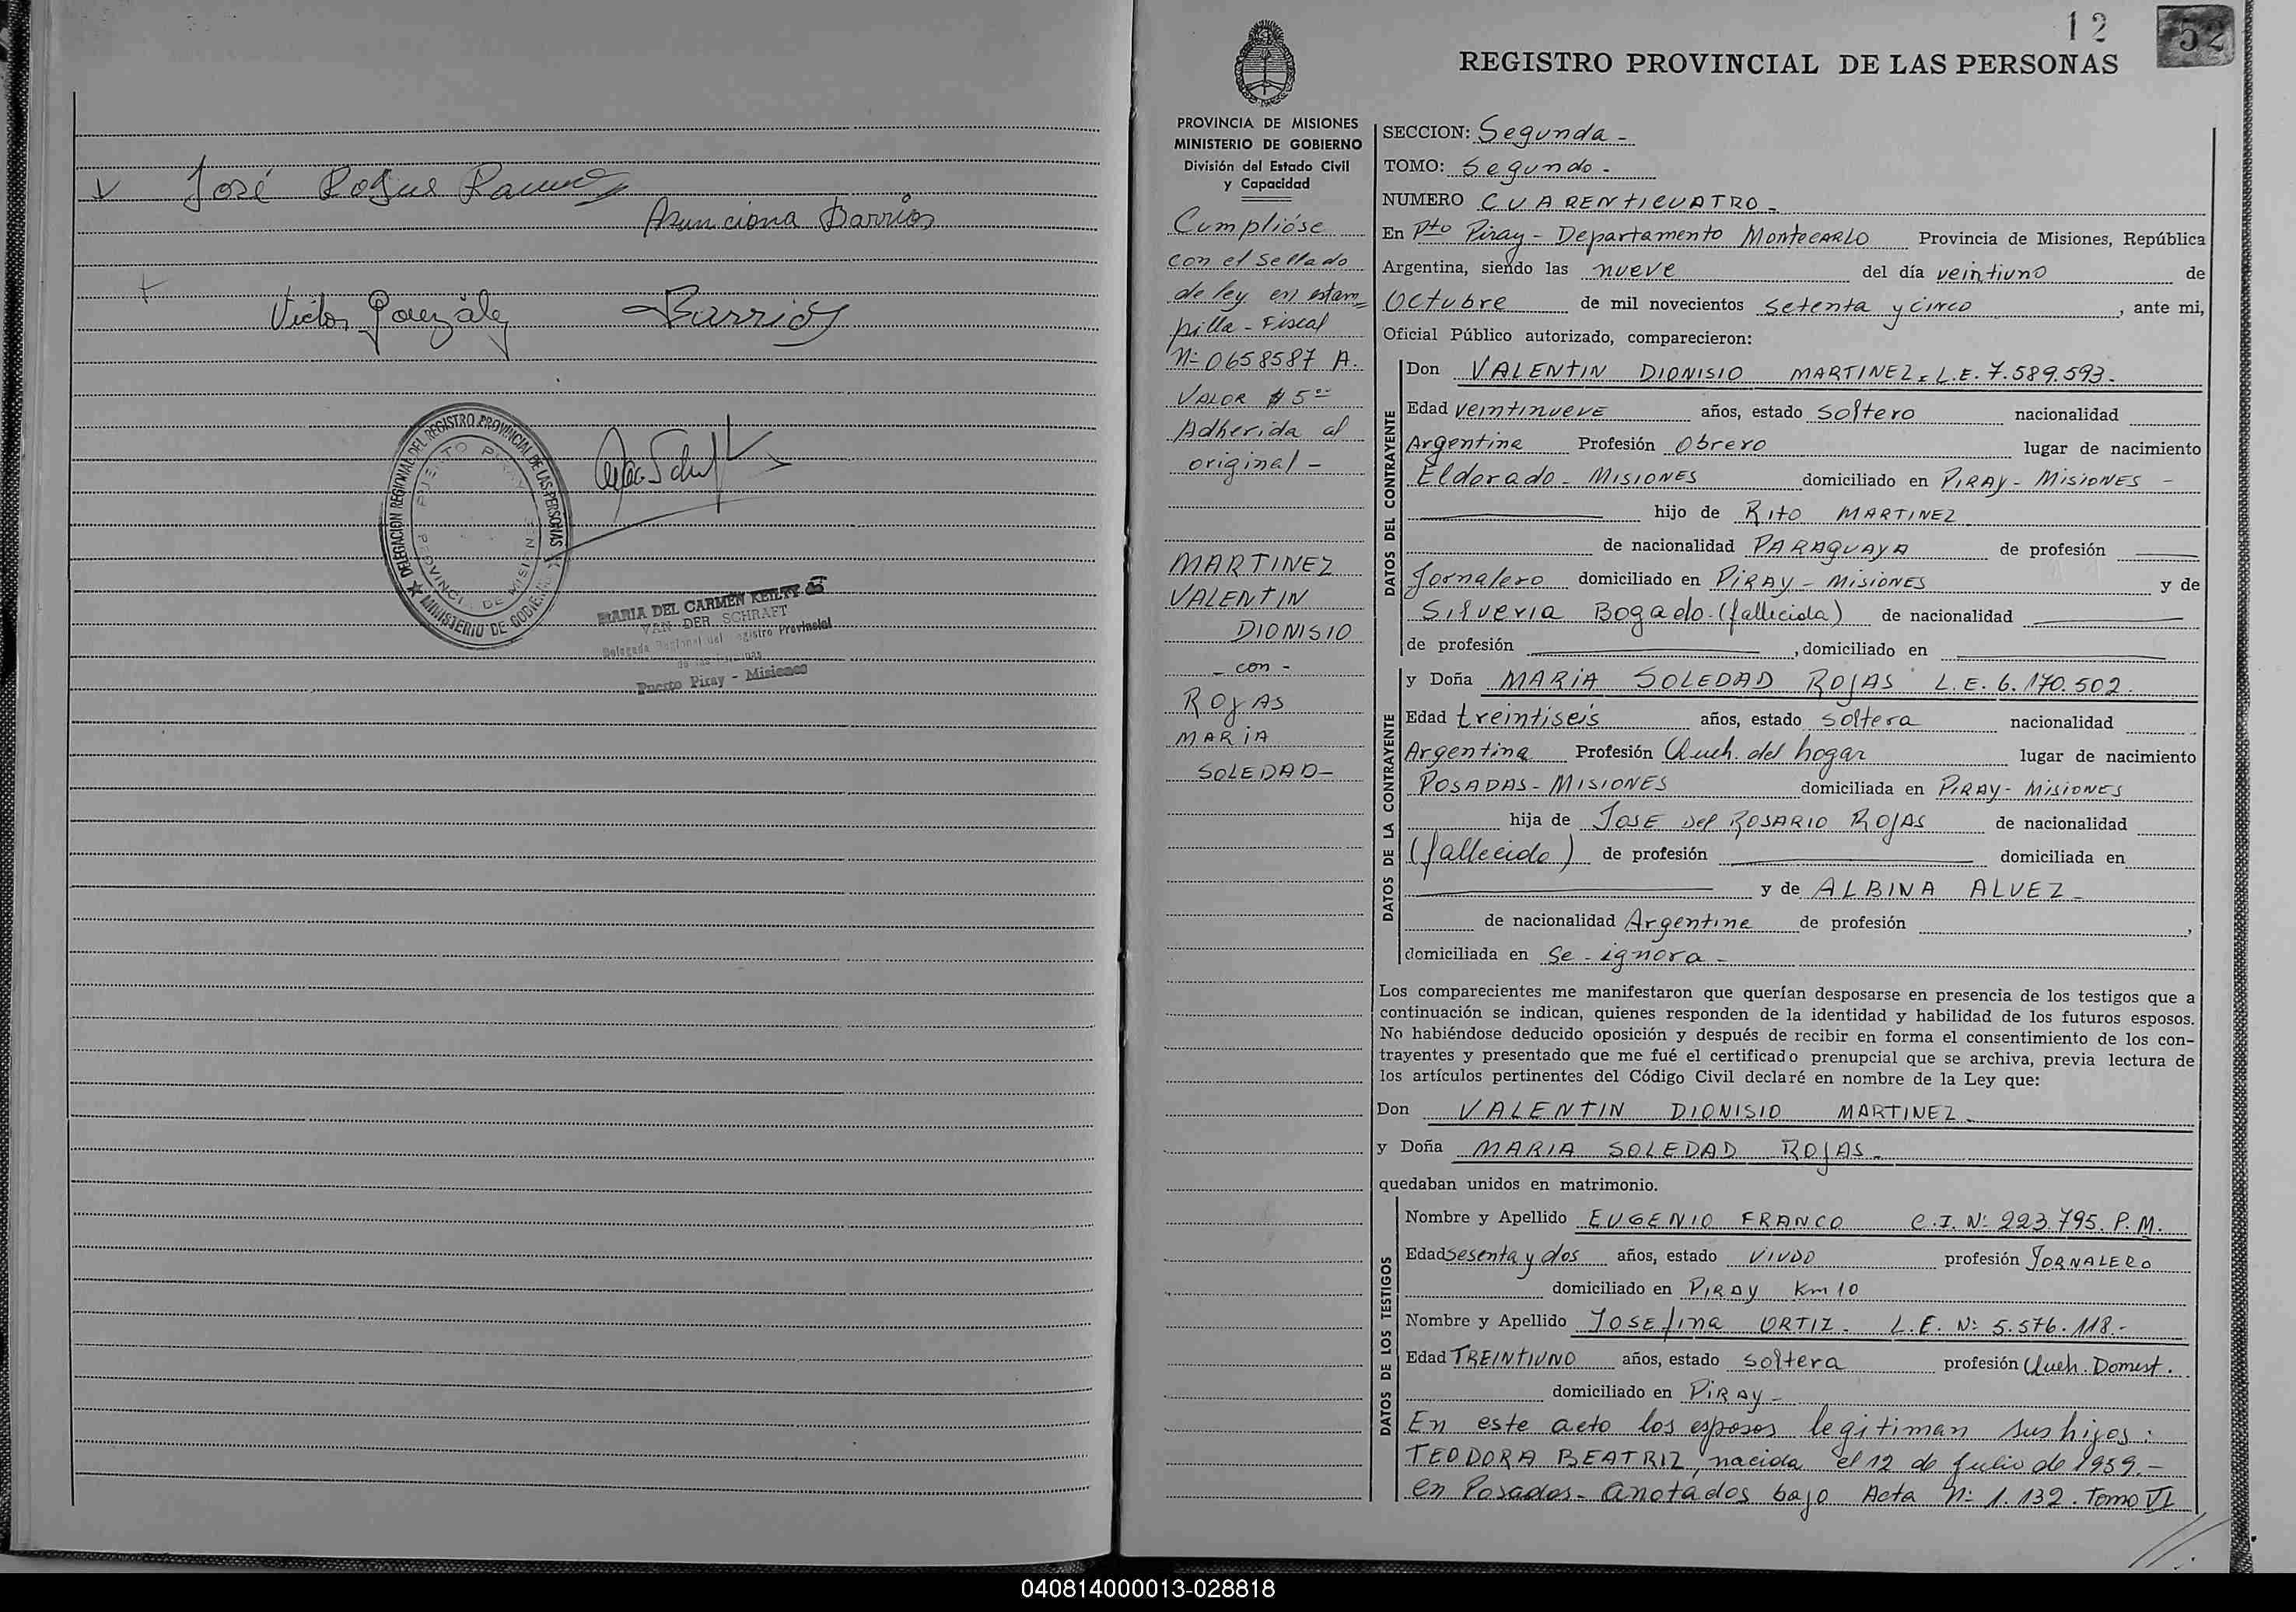 José Roque Ramos
Asunciona Barrios
Victor González Barrios
DELEGACION REGIONAL DEL REGISTRO PROVINCIAL DE LAS PERSONAS
PUERTO PIRAY
PROVINCIA DE MISIONES
MINISTERIO DE GOBIERNO
MARIA DEL CARMEN KEILTY de
VAN DER SCHRAFT
Delegada Regional del Registro Provincial
de las Personas
Puerto Piray - Misiones
12
52
REGISTRO PROVINCIAL DE LAS PERSONAS
PROVINCIA DE MISIONES
MINISTERIO DE GOBIERNO
División del Estado Civil
y Capacidad
Cumplióse
con el sellado
de ley en estam=
pilla - Fiscal
Nº 0658587 A.
VALOR $ 5ºº
Adherida al
original -
MARTINEZ
VALENTIN
DIONISIO
- con -
ROJAS
MARIA
SOLEDAD-
SECCION: Segunda -
TOMO: Segundo -
NUMERO CUARENTICUATRO -
En Pto Piray - Departamento MONTECARLO Provincia de Misiones, República
Argentina, siendo las nueve del día veintiuno de
Octubre de mil novecientos setenta y cinco, ante mi,
Oficial Público autorizado, comparecieron:
DATOS DEL CONTRAYENTE
Don VALENTIN DIONISIO MARTINEZ = L.E. 7.589.593.-
Edad veintinueve años, estado soltero nacionalidad
Argentina Profesión Obrero lugar de nacimiento
Eldorado - MISIONES domiciliado en PIRAY - MISIONES -
hijo de RITO MARTINEZ
de nacionalidad PARAGUAYA de profesión
Jornalero domiciliado en PIRAY - MISIONES y de
Silveria Bogado (fallecida) de nacionalidad
de profesión , domiciliado en
DATOS DE LA CONTRAYENTE
y Doña MARIA SOLEDAD ROJAS L.E. 6.170.502.
Edad treintiseis años, estado soltera nacionalidad
Argentina Profesión Queh. del hogar lugar de nacimiento
POSADAS - MISIONES domiciliada en PIRAY - MISIONES
hija de JOSE del ROSARIO ROJAS de nacionalidad
(fallecido) de profesión domiciliada en
y de ALBINA ALVEZ -
de nacionalidad Argentina de profesión ,
domiciliada en Se - ignora -
Los comparecientes me manifestaron que querían desposarse en presencia de los testigos que a
continuación se indican, quienes responden de la identidad y habilidad de los futuros esposos.
No habiéndose deducido oposición y después de recibir en forma el consentimiento de los con-
trayentes y presentado que me fué el certificado prenupcial que se archiva, previa lectura de
los artículos pertinentes del Código Civil declaré en nombre de la Ley que:
Don VALENTIN DIONISIO MARTINEZ -
y Doña MARIA SOLEDAD ROJAS -
quedaban unidos en matrimonio.
DATOS DE LOS TESTIGOS
Nombre y Apellido EUGENIO FRANCO C.I. Nº 223.795. P.M.
Edad sesenta y dos años, estado VIUDO profesión JORNALERO
domiciliado en PIRAY Km 10
Nombre y Apellido JOSEfina ORTIZ - L.E. Nº 5.576.118.-
Edad TREINTIUNO años, estado soltera profesión Queh. Domest.
domiciliado en PIRAY -
En este acto los esposos legitiman sus hijos:
TEODORA BEATRIZ, nacida el 12 de Julio de 1959.-
en Posadas - anotados bajo Acta Nº 1.132. Tomo VI
//.
040814000013-028818